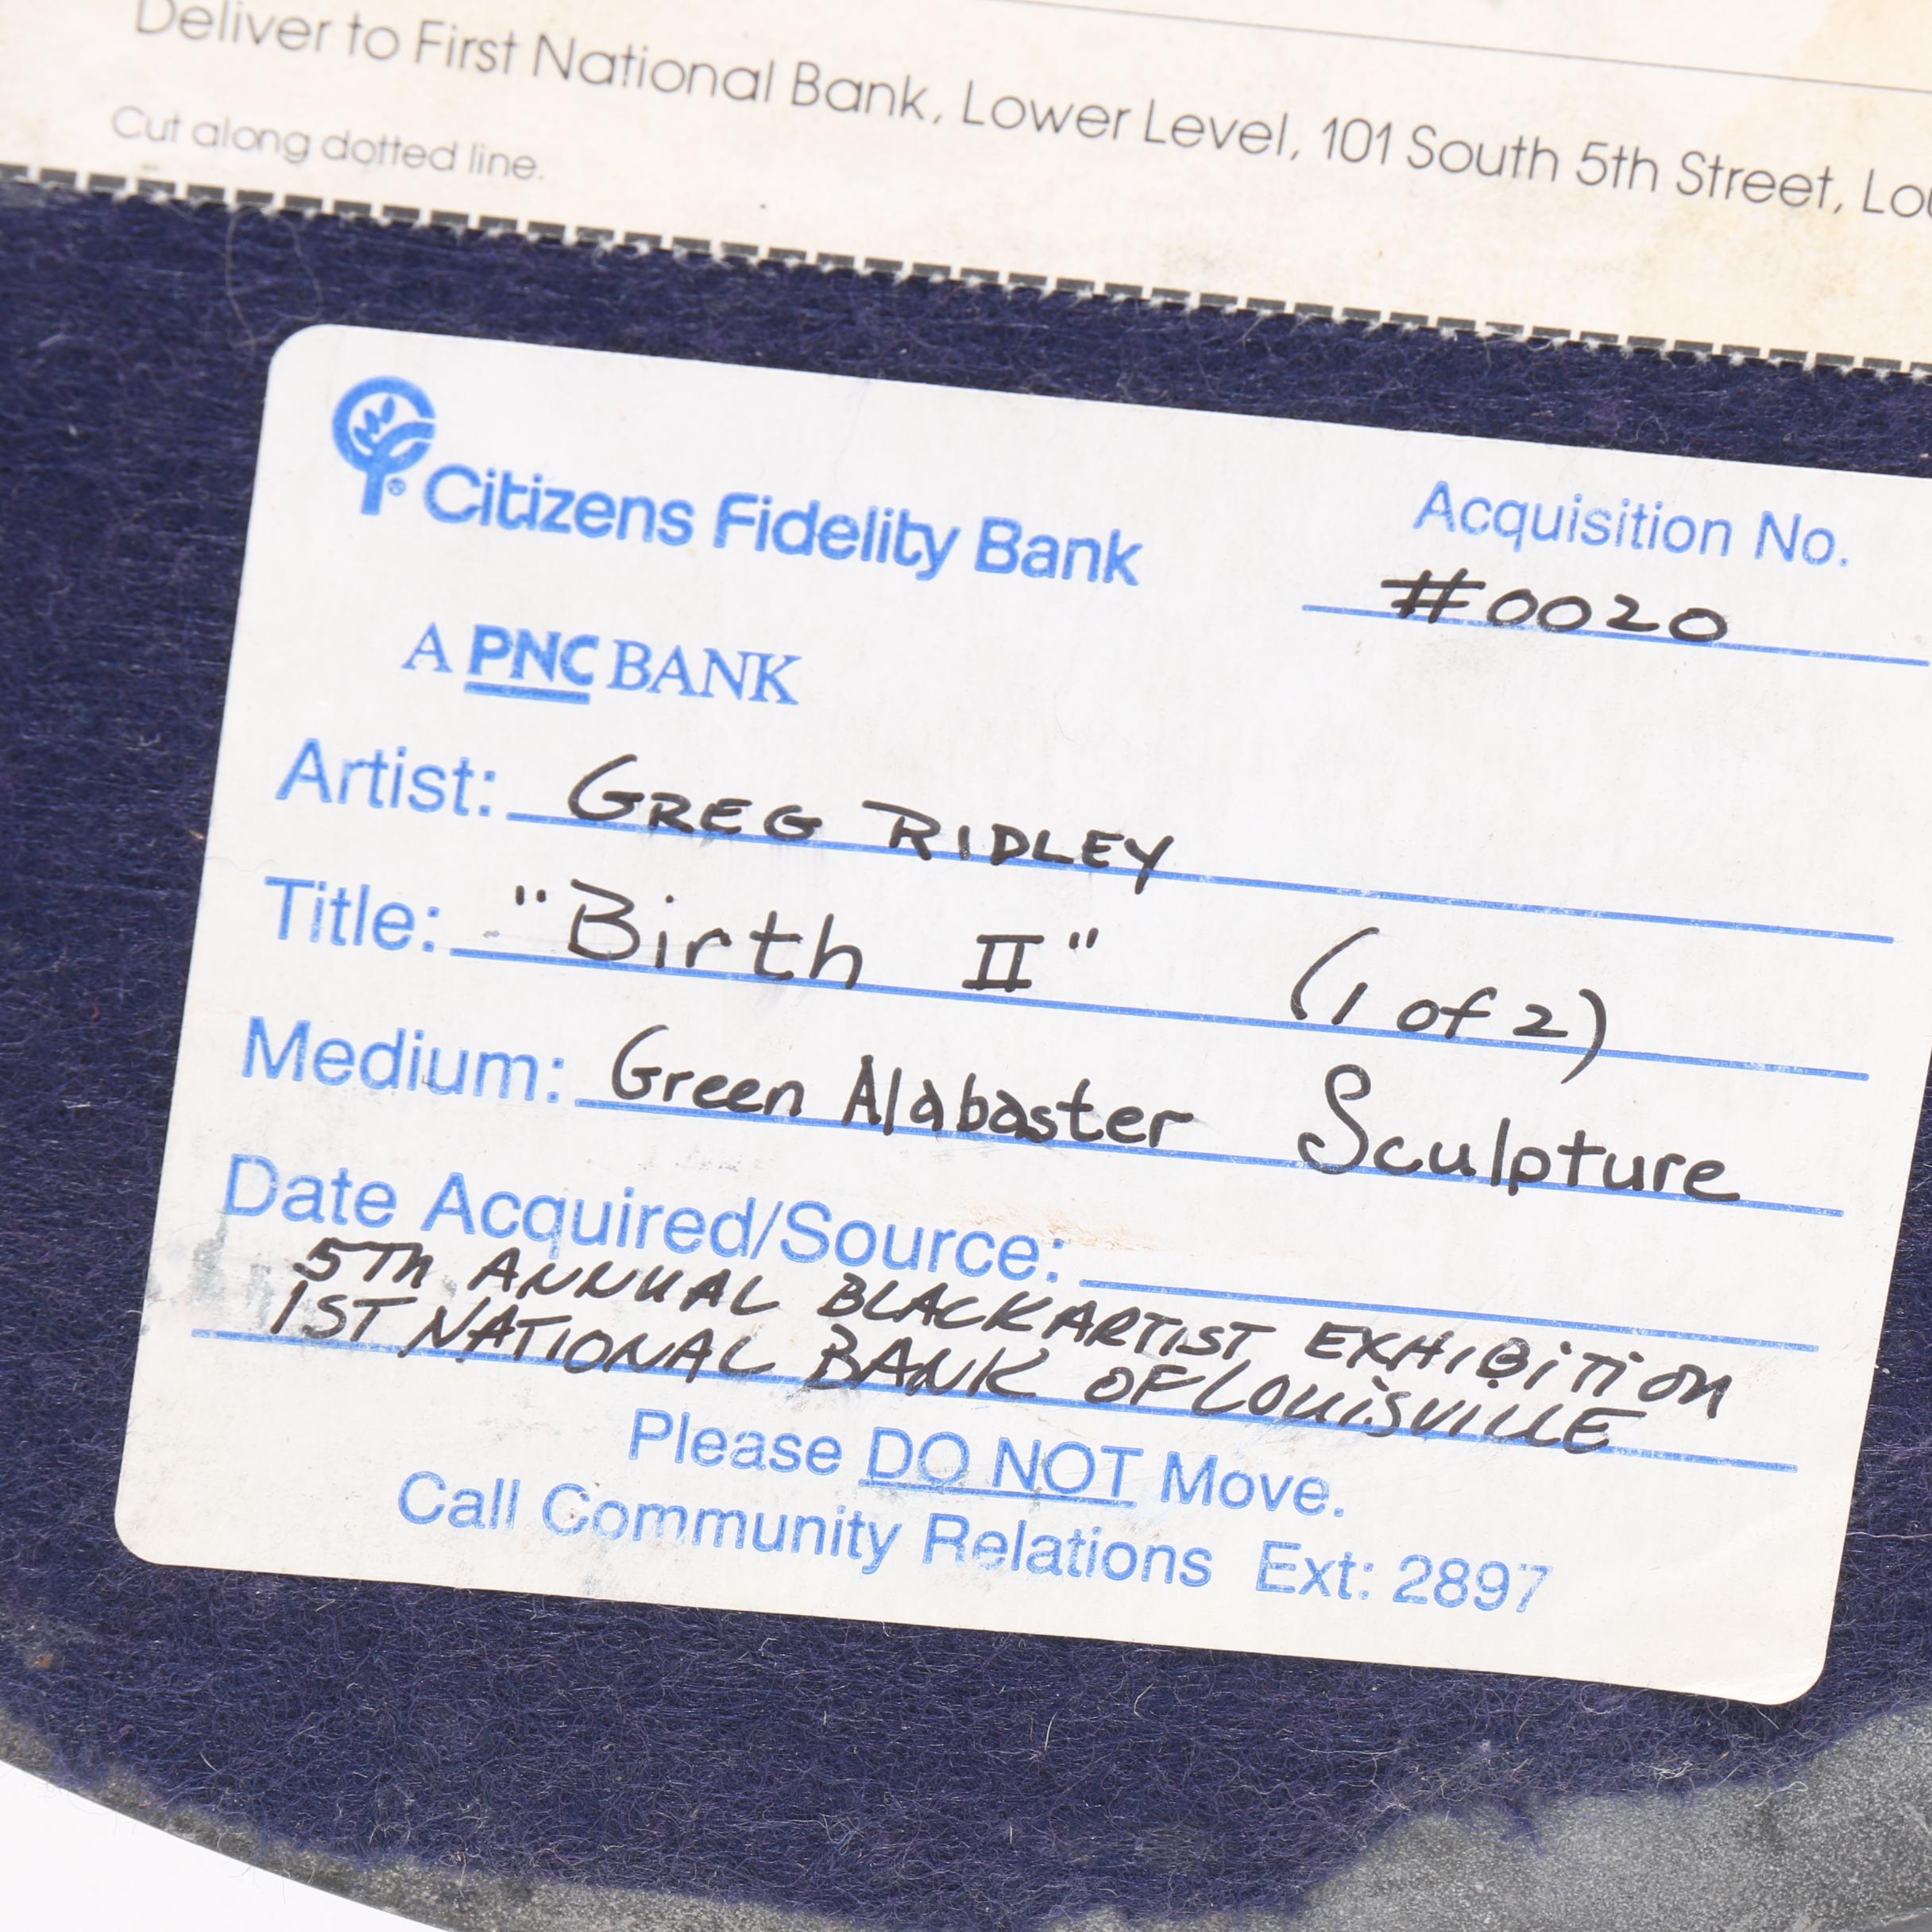 Deliver to First National Bank, Lower Level, 101 South 5th Street,
Cut along dotted line.
Citizens Fidelity Bank
Acquisition No.
#0020
A PNC BANK
Artist: GREG RIDLEY
Title: "Birth II" (1 of 2)
Medium: Green Alabaster Sculpture
Date Acquired/Source:
5TH ANNUAL BLACK ARTIST EXHIBITION
1ST NATIONAL BANK OF LOUISVILLE
Please DO NOT Move.
Call Community Relations Ext: 2897